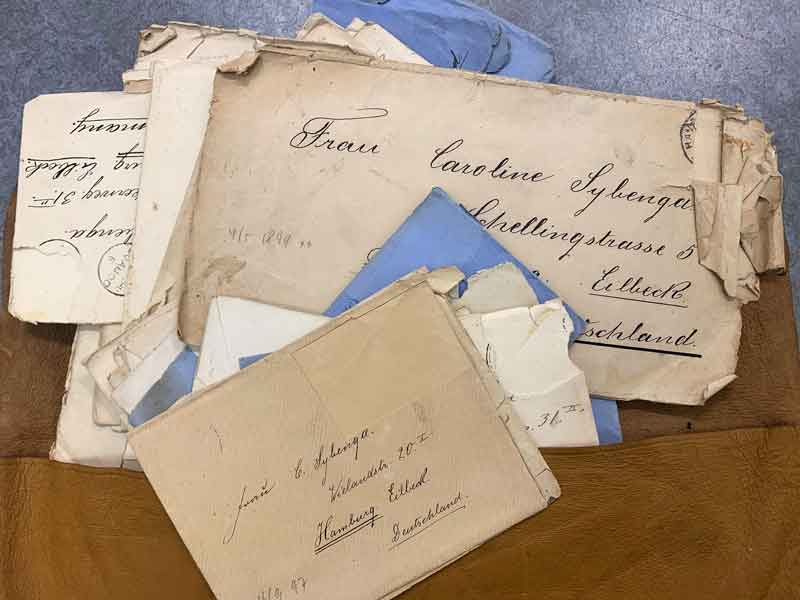 Frau
Caroline Sybenga
Schellingstrasse 5
Eilbeck
tschland.
4/5 1899
Frau C. Sybenga.
Wielandstr. 20 I.
Hamburg Eilbeck
Deutschland.
97
31 II
many.
Eilbeck
31 II
enga.